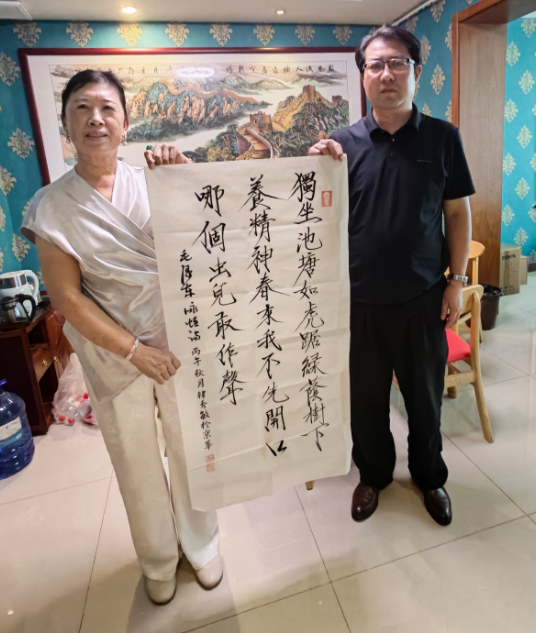 獨坐池塘如虎踞綠蔭樹下
養精神春來我不先開口
哪個虫兒敢作聲
毛澤东咏蛙诗 丙午秋月 秀敏於京華